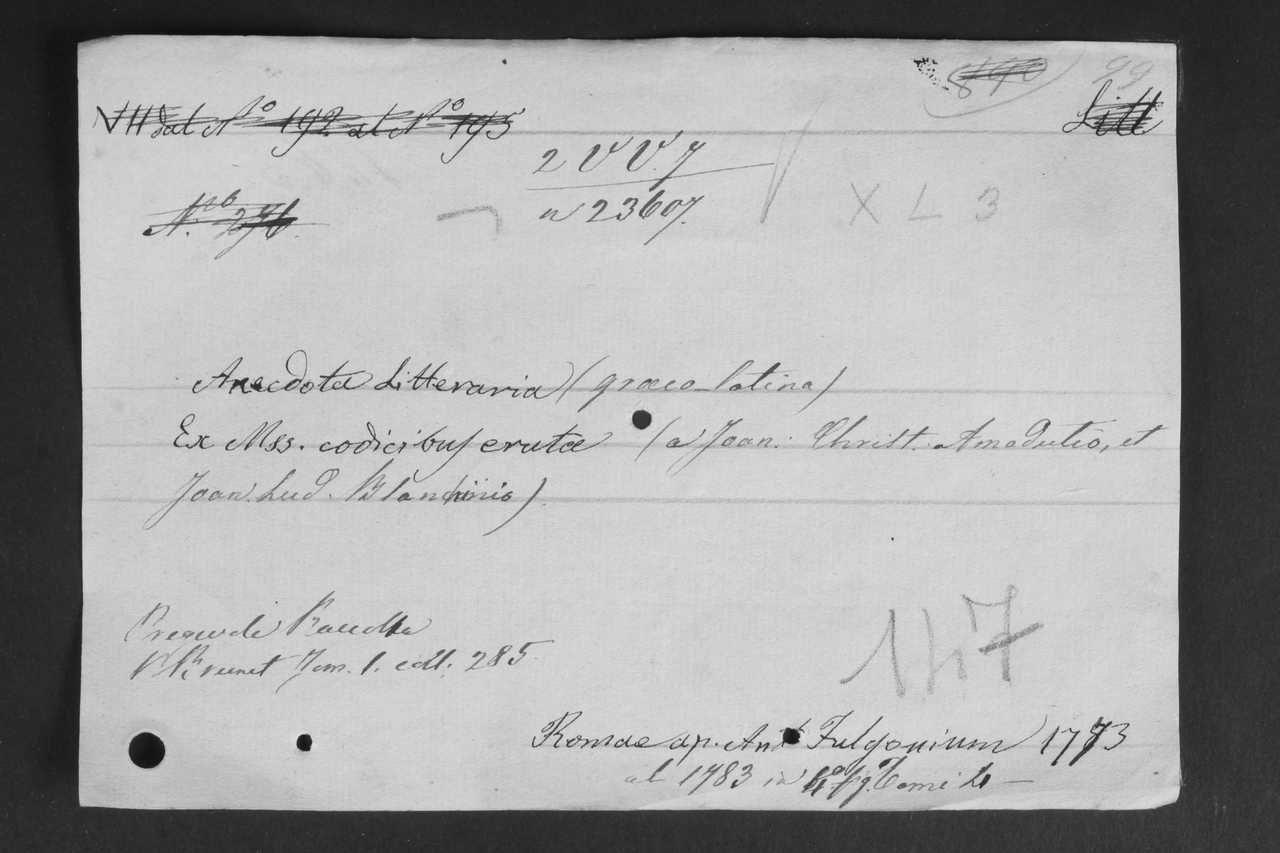 890 99
VII dal Nº 192 al Nº 195 Litt
2 V V. 7
N. 276 n 23607. X L 3
Anecdota Litteraria (græco-latina)
Ex Mss. codicibus eruta (a Joan: Christ. Amadutio, et
Joan. Lud. Blanchinio)
Raccolta
Brunet Tom. 1. coll. 285.
147
Romae ap. Ant. Fulgonium 1773
al 1783 in 4º Tomi 4